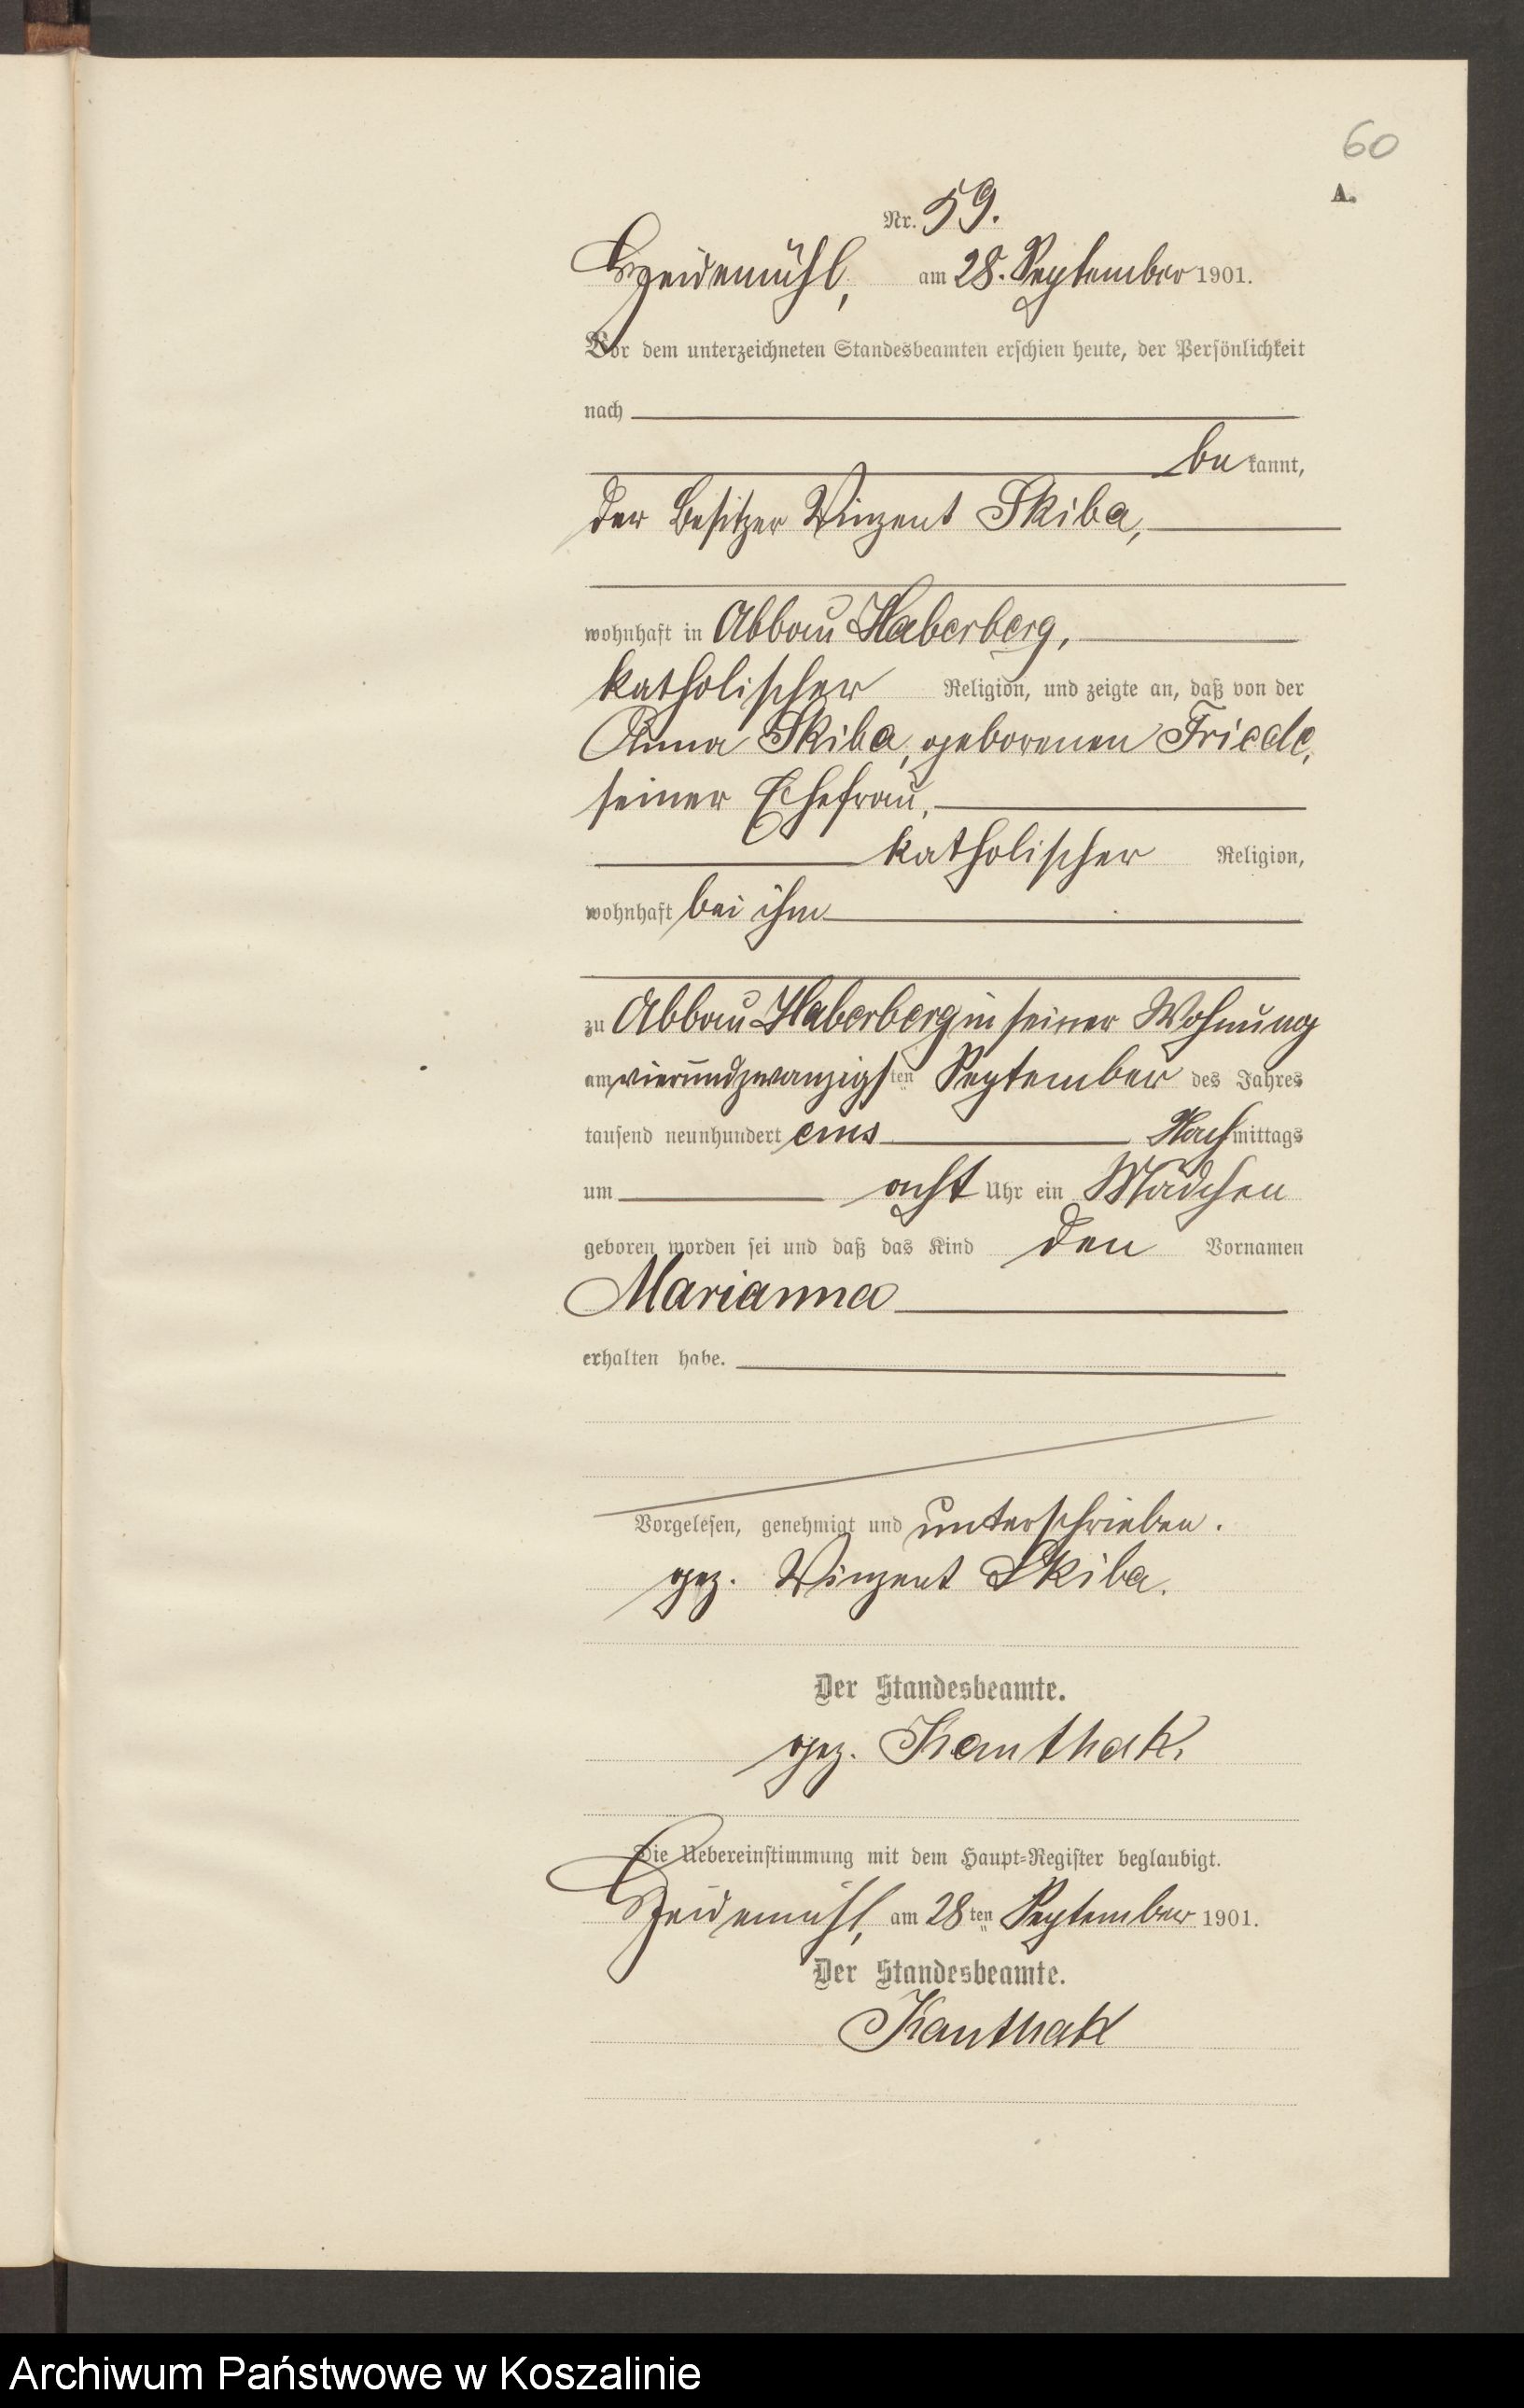 60
A.
Nr. 59.
am 28. September 1901.
Vor dem unterzeichneten Standesbeamten erschien heute, der Persönlichkeit
nach
bekannt,
der Besitzer Vinzent Skiba,
wohnhaft in Abbau Haberberg,
katholischer Religion, und zeigte an, daß von der
Anna Skiba, geborenen Friede,
seiner Ehefrau,
katholischer Religion,
wohnhaft bei ihm
zu Abbau Haberberg in seiner Wohnung
am vierundzwanzigsten September des Jahres
tausend neunhundert eins Nachmittags
um acht Uhr ein Mädchen
geboren worden sei und daß das Kind den Vornamen
Marianna
erhalten habe.
Vorgelesen, genehmigt und unterschrieben.
gez. Vinzent Skiba.
Der Standesbeamte.
gez. Kanthak.
Die Uebereinstimmung mit dem Haupt-Register beglaubigt.
am 28ten September 1901.
Der Standesbeamte.
Kanthak
Archiwum Państwowe w Koszalinie